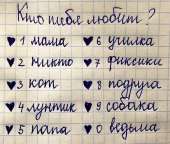 Кто тебя любит?
♥ 1 мама ♥ 6 училка
♥ 2 никто ♥ 7 фиксики
♥ 3 кот ♥ 8 подруга
♥ 4 лунтик ♥ 9 собака
♥ 5 папа ♥ 0 ведьма